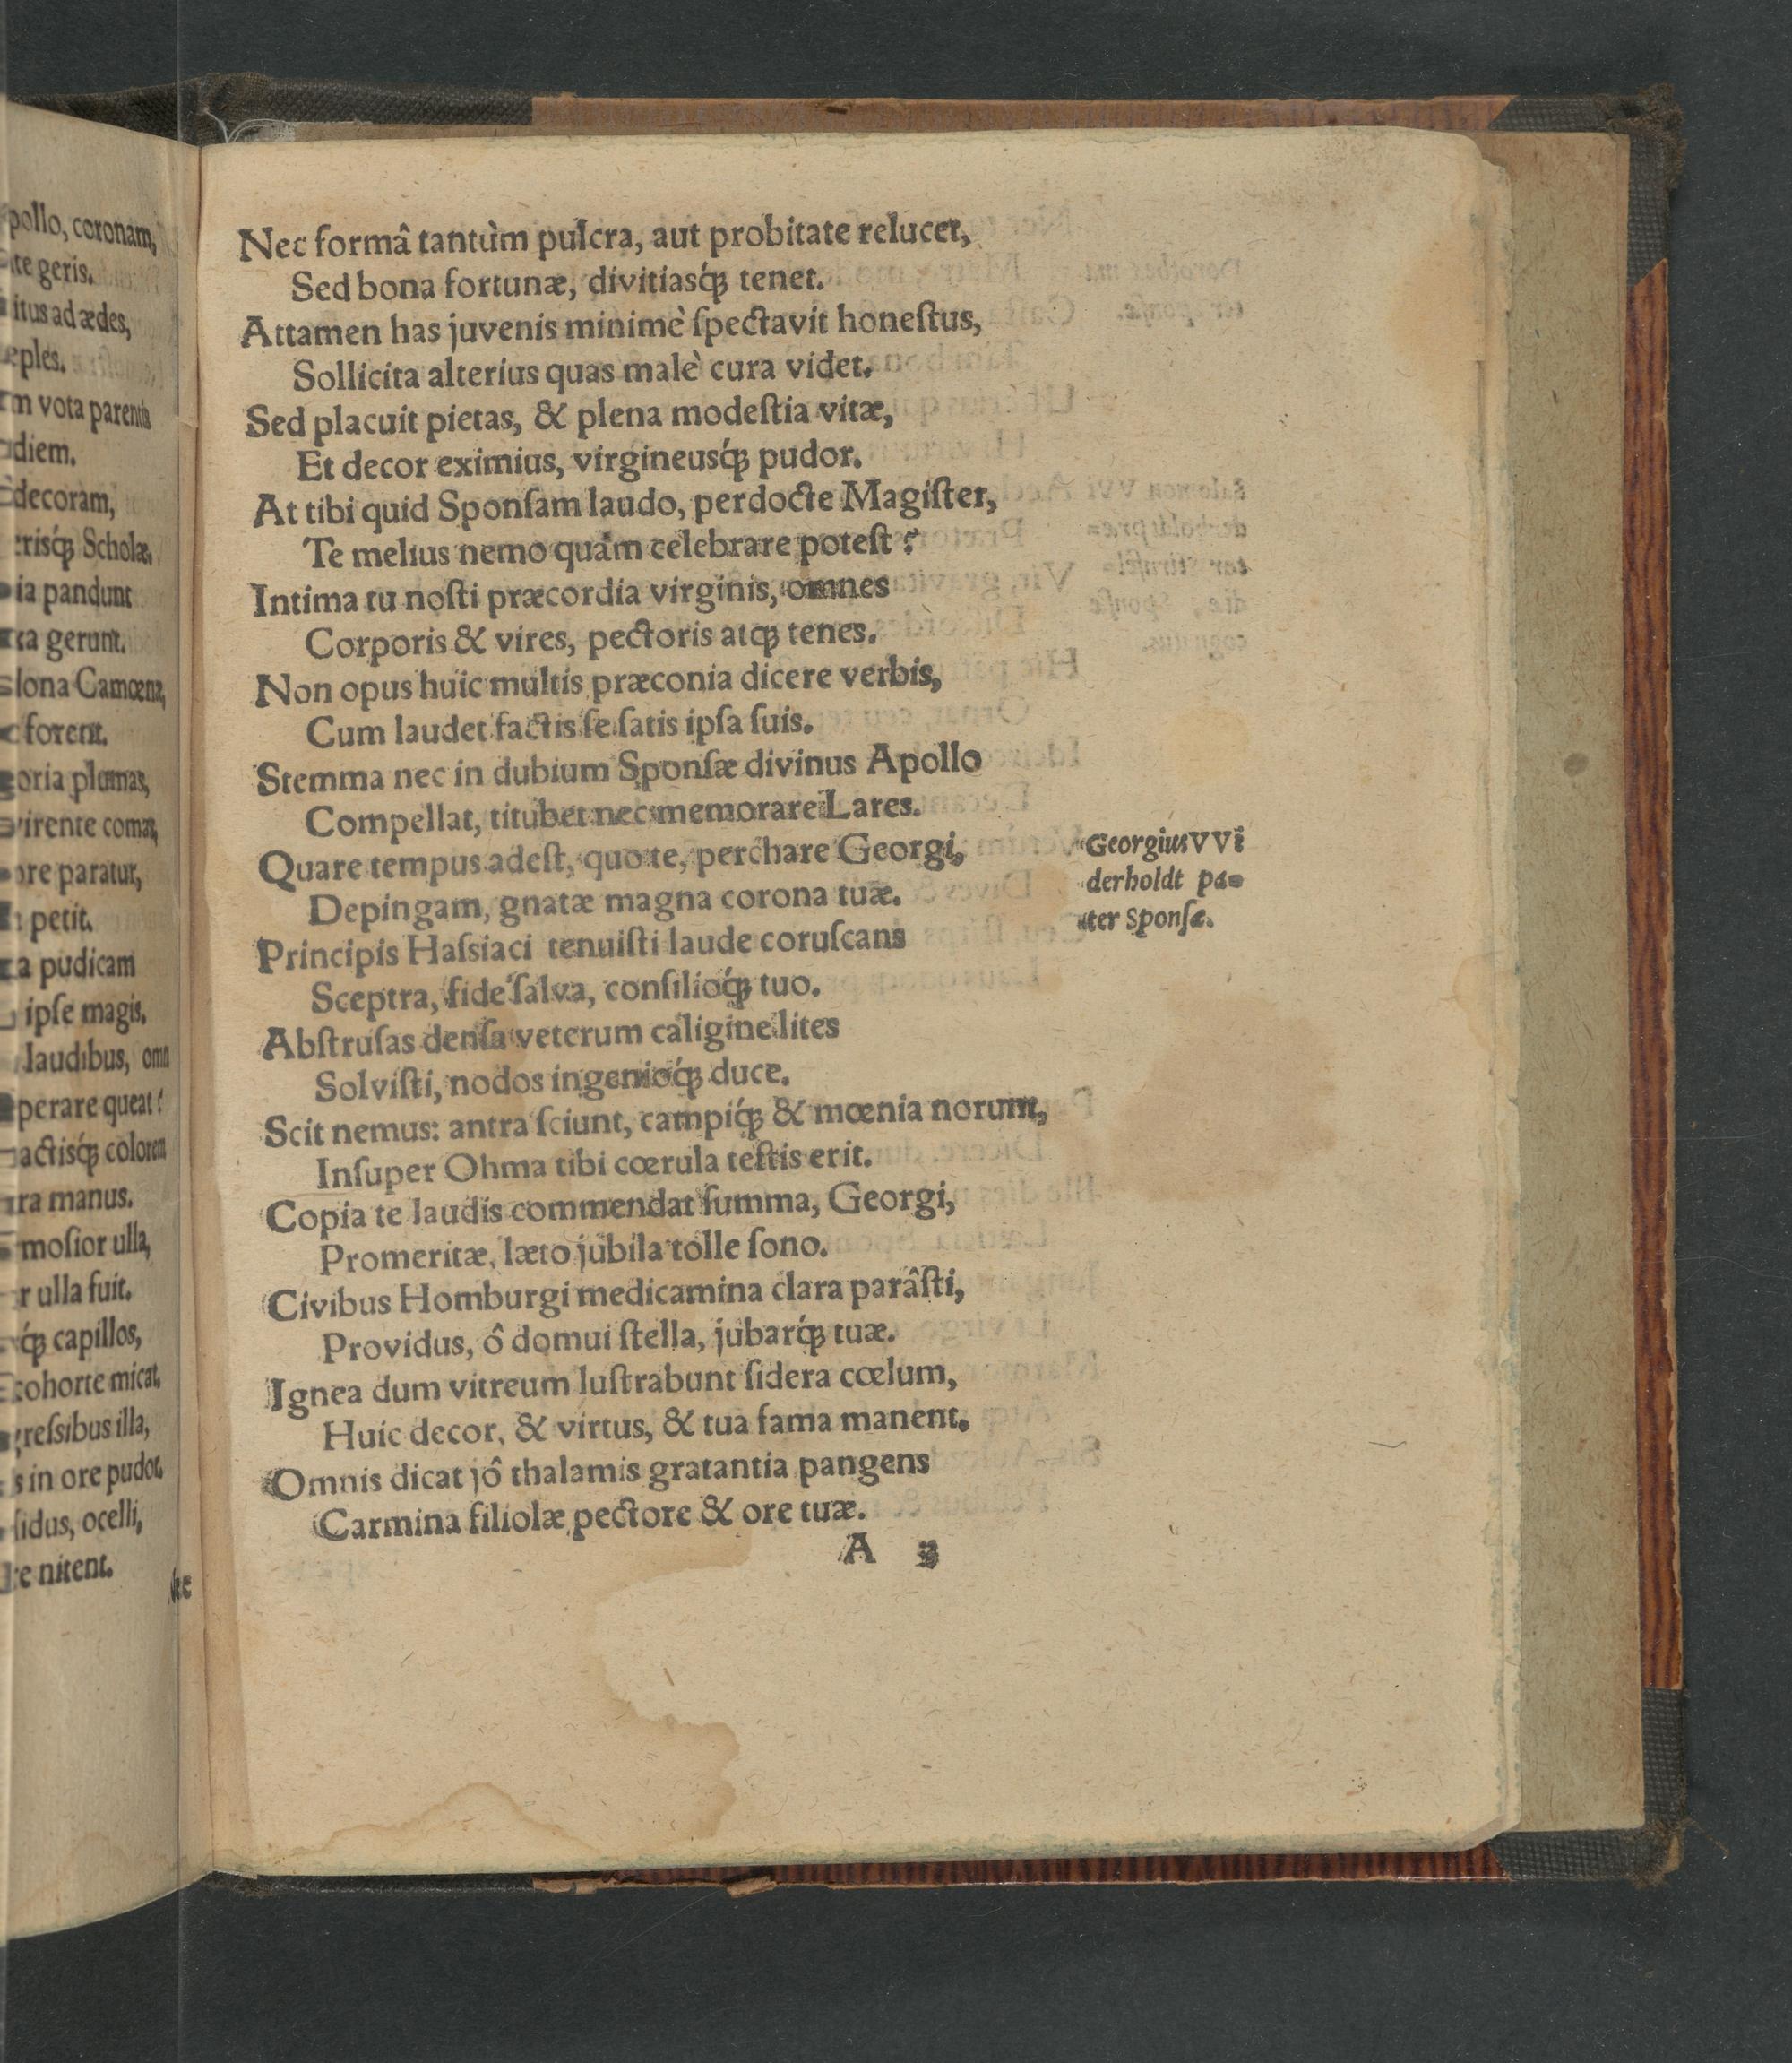 pollo, coronam,
te geris.
itus ad ædes,
eples.
m vota parentis
diem.
decoram,
erisq́ꝫ Scholæ.
ia pandunt
ta gerunt.
lona Camœna,
forent.
oria plumas,
virente comas,
ore paratur,
petit.
a pudicam
ipse magis.
laudibus, omn
perare queat?
actisq́ꝫ colorem
ra manus.
mosior ulla,
r ulla fuit.
q́ꝫ capillos,
cohorte micat.
gressibus illa,
s in ore pudor.
sidus, ocelli,
re nitent.
Nec
Nec formâ tantùm pulcra, aut probitate relucet,
Sed bona fortunæ, divitiasq́ꝫ tenet.
Attamen has juvenis minimè ſpectavit honeſtus,
Sollicita alterius quas malè cura videt.
Sed placuit pietas, & plena modeſtia vitæ,
Et decor eximius, virgineusq́ꝫ pudor.
At tibi quid Sponſam laudo, perdocte Magiſter,
Te melius nemo quám celebrare poteſt?
Intima tu noſti præcordia virginis, omnes
Corporis & vires, pectoris atqꝫ tenes.
Non opus huic multis præconia dicere verbis,
Cum laudet factis ſe ſatis ipſa ſuis.
Stemma nec in dubium Sponſæ divinus Apollo
Compellat, titubet nec memorare Lares.
Quare tempus adeſt, quo te, perchare Georgi,
Depingam, gnatæ magna corona tuæ.
Georgius VVi
derholdt pa=
ter Sponſæ.
Principis Haſsiaci tenuiſti laude coruſcans
Sceptra, fide ſalva, consilioq́ꝫ tuo.
Abſtruſas denſa veterum caligine lites
Solviſti, nodos ingenioq́ꝫ duce.
Scit nemus: antra ſciunt, campiq́ꝫ & mœnia norunt,
Inſuper Ohma tibi cœrula teſtis erit.
Copia te laudis commendat ſumma, Georgi,
Promeritæ, læto jubila tolle ſono.
Civibus Homburgi medicamina clara parâſti,
Providus, ô domui ſtella, jubarq́ꝫ tuæ.
Ignea dum vitreum luſtrabunt ſidera cœlum,
Huic decor, & virtus, & tua fama manent.
Omnis dicat jô thalamis gratantia pangens
Carmina filiolæ pectore & ore tuæ.
A 3